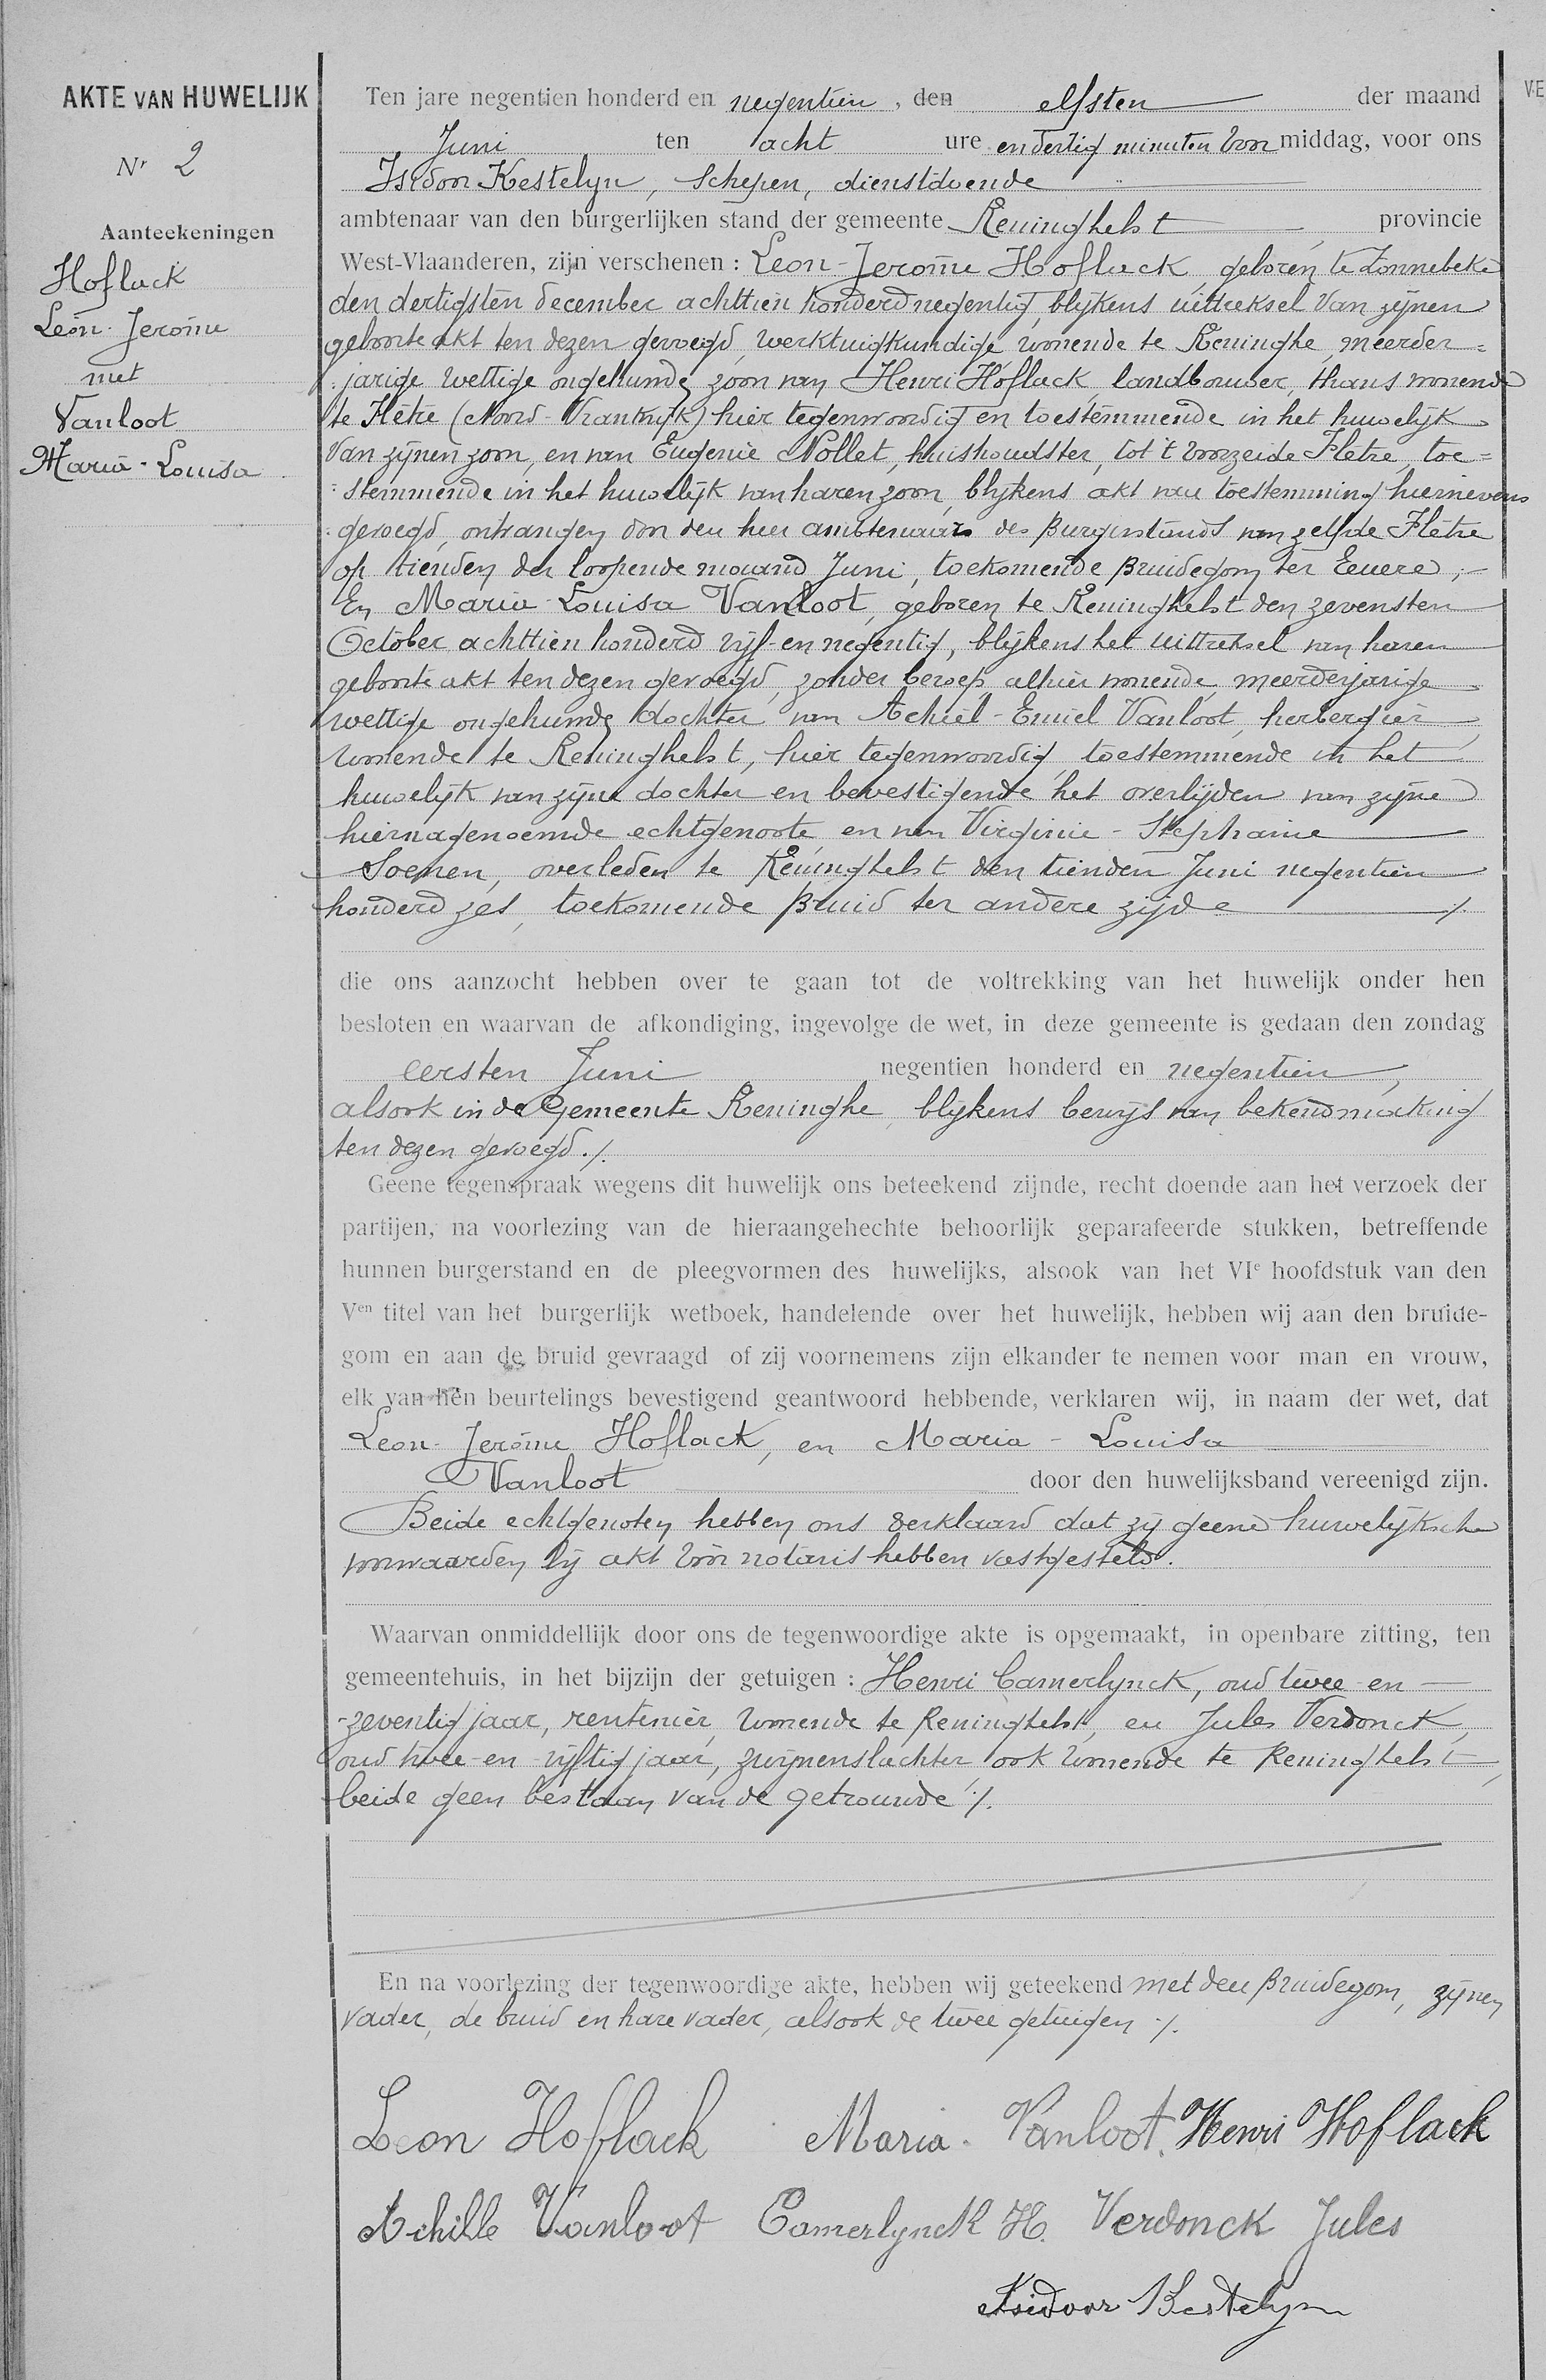 AKTE VAN HUWELIJK
Nr 2
Aanteekeningen
Hoflack
Leon-Jerome
met
Vanloot
Maria-Louisa
Ten jare negentien honderd en negentien, den elfsten der maand
Juni ten acht ure en dertig minuten voor middag, voor ons
Isidoor Kestelyn, Schepen, dienstdoende
ambtenaar van den burgerlijken stand der gemeente Reninghelst, provincie
West-Vlaanderen, zijn verschenen : Leon-Jerome Hoflack geboren te Zonnebeke
den dertigsten december achttien honderd negentig, blijkens uittreksel van zijnen
geboorte akt ten dezen gevoegd, werktuigkundige wonende te Reninghe, meerder=
jarige wettige ongehuwde zoon van Henri Hoflack, landbouwer, thans wonende
te Flêtre (Noord-Vrankrijk) hier tegenwoordig en toestemmende in het huwelijk
van zijnen zoon, en van Eugenie Nollet, huishoudster, tot 't voorzeide Flêtre, toe=
=stemmende in het huwelijk van haren zoon, blijkens akt van toestemming hiernevens
gevoegd, ontvangen door den heer ambtenaar des Burgerstands van zelfde Flêtre
op tienden der loopende maand Juni, toekomende Bruidegom ter Eenere ;
En Maria-Louisa Vanloot, geboren te Reninghelst den zevensten
October achttien honderd vijf-en negentig, blijkens het uittreksel van haren
geboorte akt ten dezen gevoegd, zonder beroep, alhier wonende, meerderjarige
wettige ongehuwde dochter van Achiel-Emiel Vanloot, herbergier,
wonende te Reninghelst, hier tegenwoordig, toestemmende in het
huwelijk van zijne dochter en bevestigende het overlijden van zijne
hiernagenoemde echtgenoote en van Virginie-Stephanie
Soenen, overleden te Reninghelst den tienden Juni negentien
honderd zes, toekomende Bruid ter andere zijde ./.
die ons aanzocht hebben over te gaan tot de voltrekking van het huwelijk onder hen
besloten en waarvan de afkondiging, ingevolge de wet, in deze gemeente is gedaan den zondag
eersten Juni negentien honderd en negentien,
alsook in de Gemeente Reninghe, blijkens bewijs van bekendmaking
ten dezen gevoegd ./.
Geene tegenspraak wegens dit huwelijk ons beteekend zijnde, recht doende aan het verzoek der
partijen, na voorlezing van de hieraangehechte behoorlijk geparafeerde stukken, betreffende
hunnen burgerstand en de pleegvormen des huwelijks, alsook van het VIe hoofdstuk van den
Ven titel van het burgerlijk wetboek, handelende over het huwelijk, hebben wij aan den bruide-
gom en aan de bruid gevraagd of zij voornemens zijn elkander te nemen voor man en vrouw,
elk van hen beurtelings bevestigend geantwoord hebbende, verklaren wij, in naam der wet, dat
Leon-Jerôme Hoflack, en Maria-Louisa
Vanloot door den huwelijksband vereenigd zijn.
Beide echtgenoten hebben ons verklaard dat zij geene huwelijksche
voorwaarden bij akt voor notaris hebben vastgesteld.
Waarvan onmiddellijk door ons de tegenwoordige akte is opgemaakt, in openbare zitting, ten
gemeentehuis, in het bijzijn der getuigen : Henri Camerlynck, oud twee-en
-zeventig jaar, rentenier, wonende te Reninghelst, en Jules Verdonck,
oud twee-en-vijftig jaar, zwijnenslachter ook wonende te Reninghelst,
beide geen bestaan van de getrouwde ./.
En na voorlezing der tegenwoordige akte, hebben wij geteekend met den Bruidegom, zijnen
vader, de bruid en hare vader, alsook de twee getuigen ./.
Leon Hoflack Maria Vanloot. Henri Hoflack
Achille Vanloot Camerlynck H. Verdonck Jules
Isidoor Kestelyn